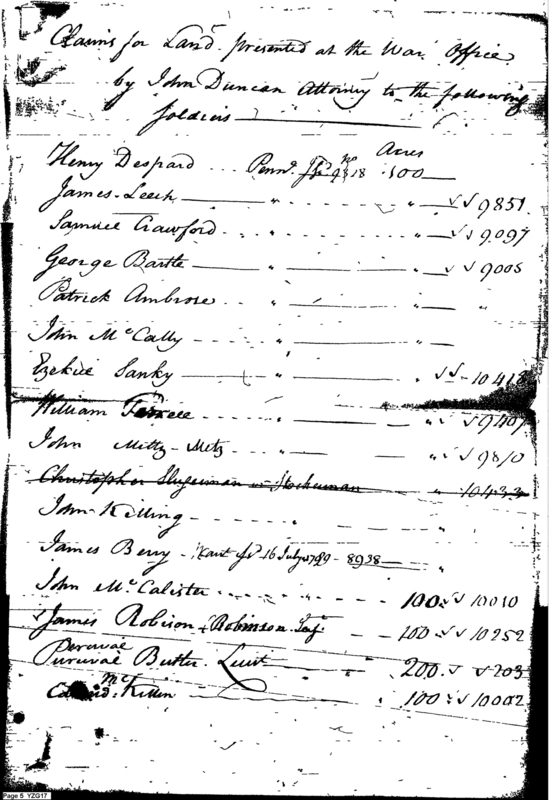 Claims for Land presented at the War Office
by John Duncan Attorney to the following
Soldiers
Acres
Henry Despard Pennª. No 9318 100
James Leech " " ✓✓ 9851
Samuel Crawford " " ✓✓ 9097
George Bartle " " ✓✓ 9005
Patrick Ambrose " " "
John McCally " "
Ezekiel Sanky " ✓✓ 10418
William Ferrell " " ✓ 9407
John Mitty - Metz " " ✓ 9810
Christopher Slugeman or Stockeman " 10433
John Killing " "
James Berry 16 July 1789 - 8938
John McCalister " " 100 ✓✓ 10010
✓ James Robison Robinson 100 ✓✓ 10252
Percival
Purcival Butler Lieut 200 ✓ ✓ 203
McKillin " 100 ✓ 10002
Page 5 YZG17